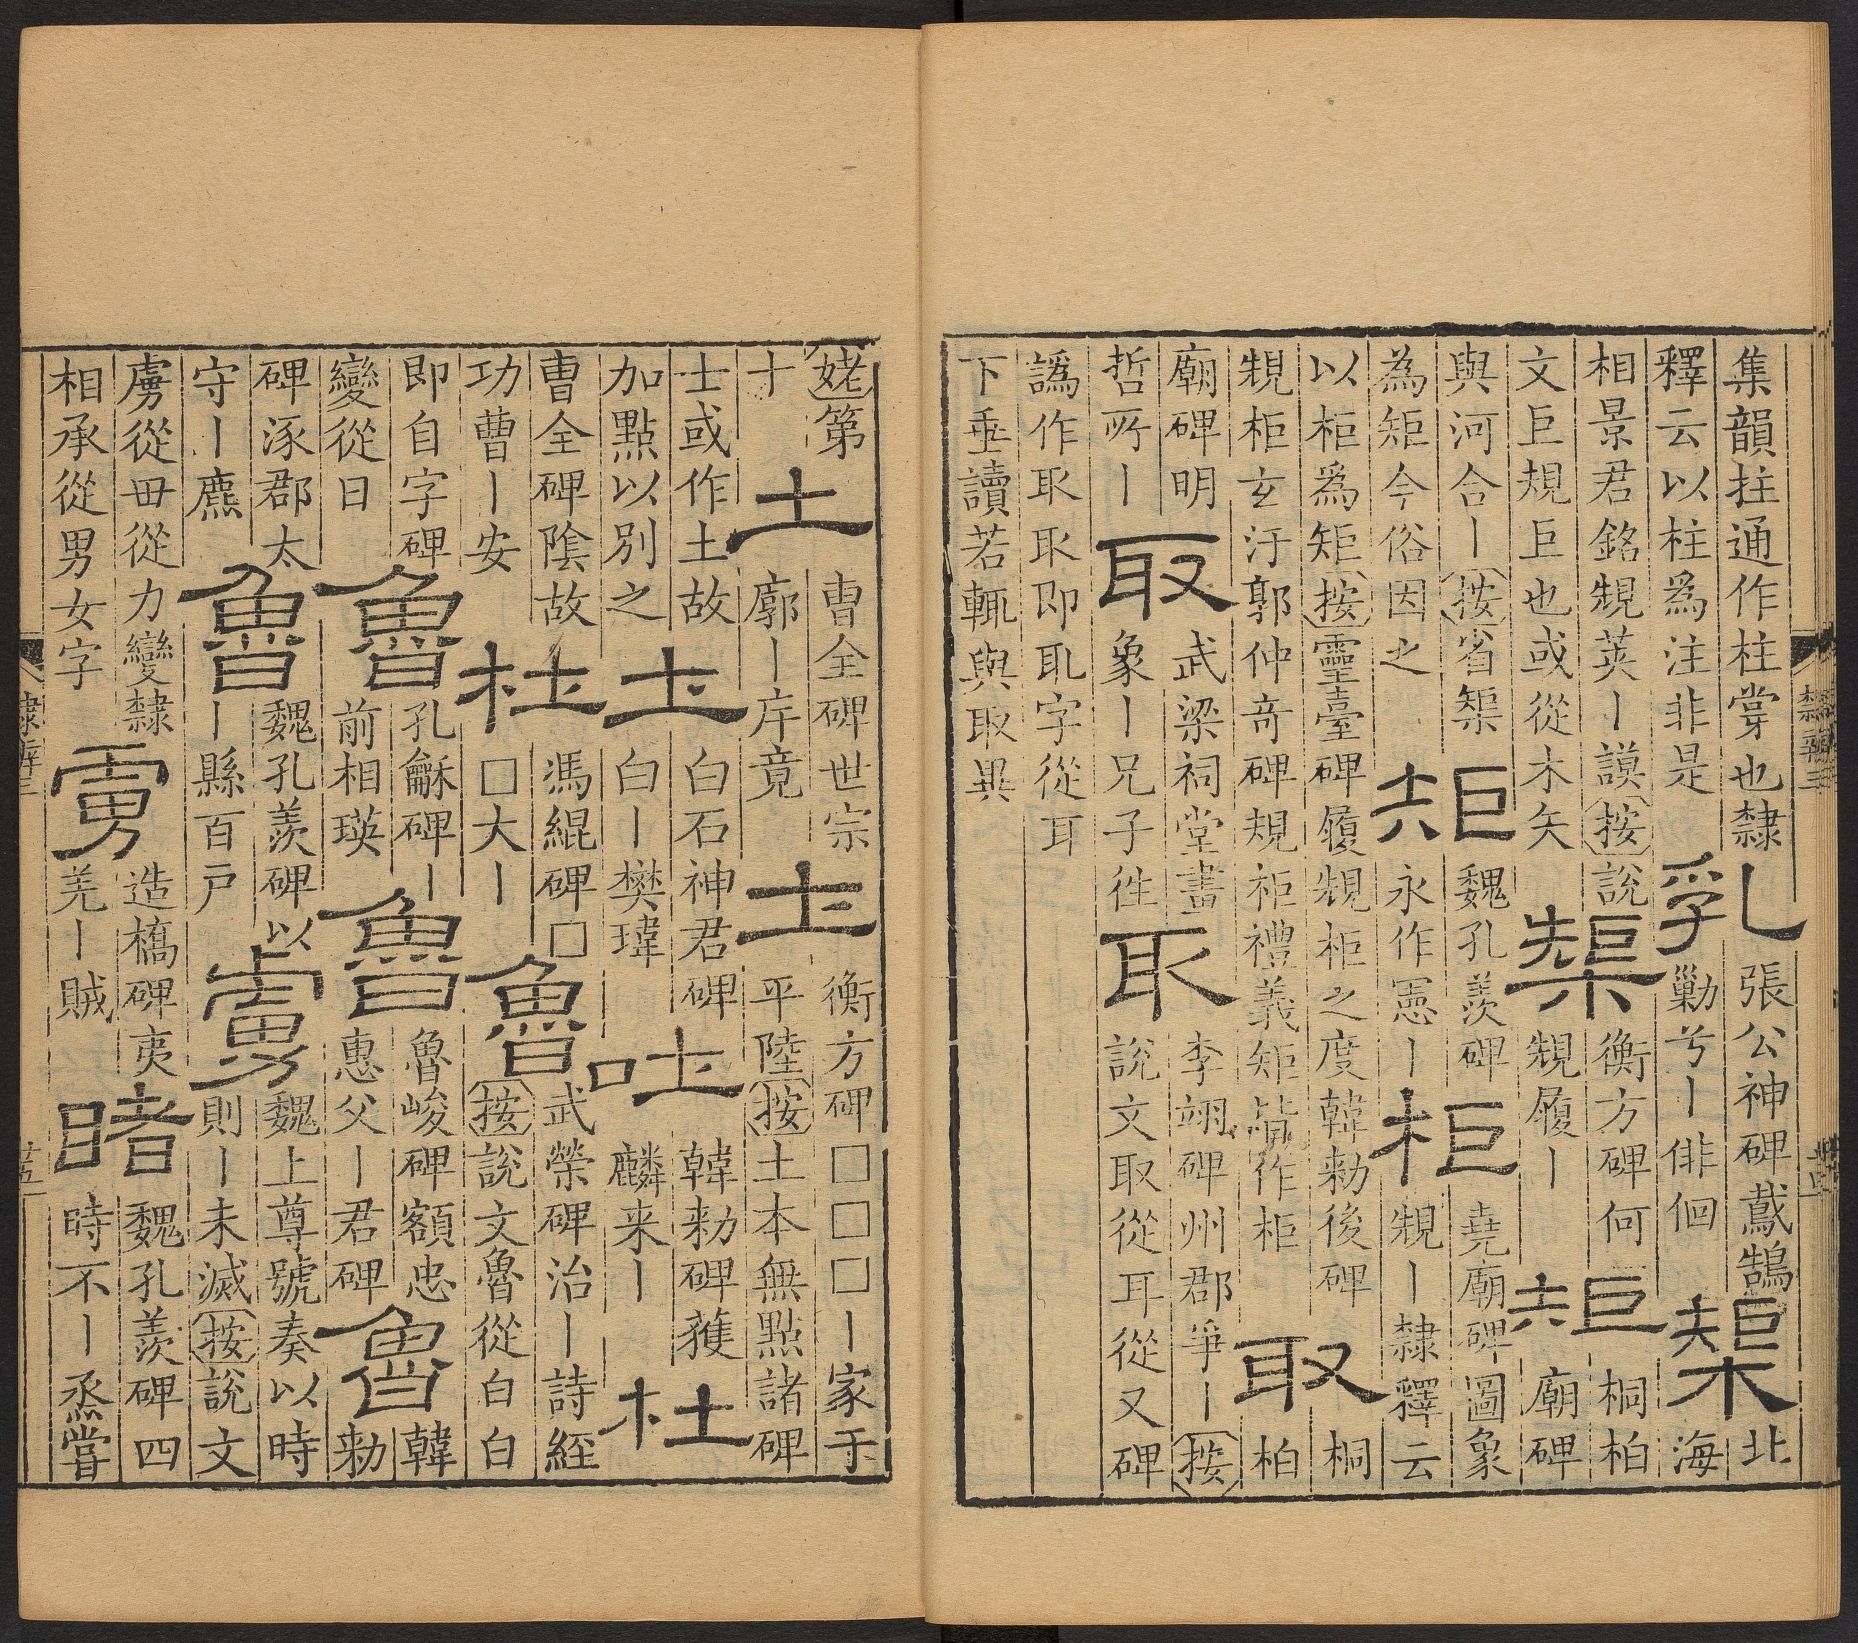 集韻拄通作柱掌也隸
釋云以柱爲注非是
乳
張公神碑鳶鵠
勦兮丨俳佪
榘
北
海
相景君銘䂓英丨謨按說
文巨規巨也或從木矢
榘
衡方碑何
䂓履丨
矩
桐柏
廟碑
與河合丨按省榘
為矩今俗因之
矩
魏孔羨碑
永作憲丨
柜
堯廟碑圖象
䂓丨隸釋云
以柜爲矩按靈臺碑履䂓柜之度韓勑後碑
䂓柜玄汙郭仲奇碑規柜禮義矩皆作柜
取
桐
柏
廟碑明
哲所丨
取
武梁祠堂畫
象丨兄子徃
取
李翊碑州郡爭丨按
說文取從耳從又碑
譌作取取即耴字從耳
下垂讀若輒與取異
隸辨三
姥第
十
土
曹全碑世宗
廓丨斥竟
土
衡方碑□□□丨家于
平陸按土本無點諸碑
士或作土故
加點以別之
土
白石神君碑
白丨樊瑋
吐
韓勑碑䕶
麟来丨
杜
曹全碑陰故
功曹丨安
杜
馮緄碑□
□大丨
魯
武榮碑治丨詩經
按說文魯從白白
即自字碑
變從日
魯
孔龢碑丨
前相瑛
魯
魯峻碑額忠
惠父丨君碑
魯
韓
勑
碑涿郡太
守丨麃
魯
魏孔羨碑以
丨縣百戶
虜
魏上尊號奏以時
則丨未滅按說文
虜從毌從力變隸
相承從男女字
虜
造橋碑夷
羌丨賊
睹
魏孔羨碑四
時不丨烝嘗